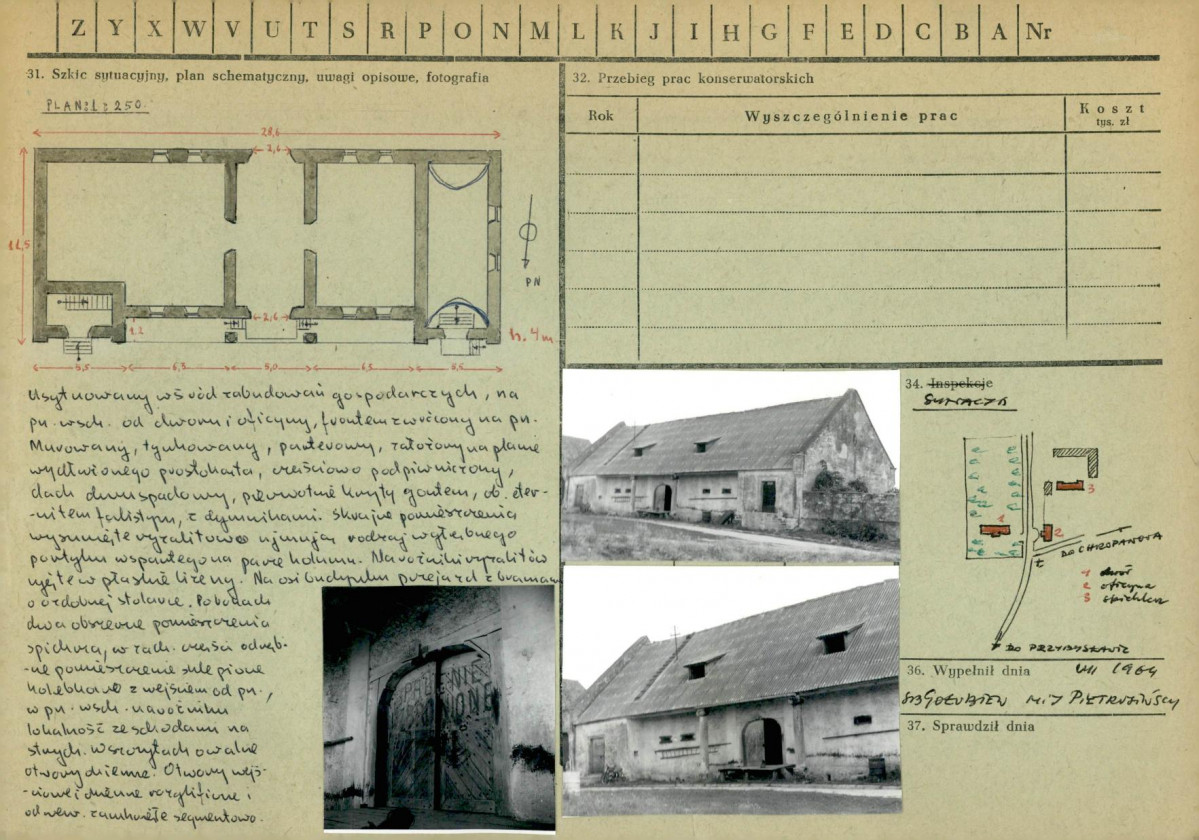 Z Y X W V U T S R P O N M L K J I H G F E D C B A Nr
31. Szkic sytuacyjny, plan schematyczny, uwagi opisowe, fotografia
PLAN: 1:250.
28,6
2,6
11,5
PN
2,6
1.2
h. 4m
5,5 6,3 5,0 6,3 5,5
Usytuowany wśród zabudowań gospodarczych, na
pn.-wsch. od dworu i oficyny, frontem zwrócony na pn.
Murowany, tynkowany, parterowy, założony na planie
wydłużonego prostokąta, częściowo podpiwniczony,
dach dwuspadowy, pierwotnie kryty gontem, ob. eter-
-nitem falistym, z dymnikami. Skrajne pomieszczenia
wysunięte ryzalitowo ujmują rodzaj wgłębnego
portyku wspartego na parze kolumn. Narożniki ryzalitów
ujęte w płaskie lizeny. Na osi budynku przejazd z bramami
o ozdobnej stolarce. Po bokach
dwa obszerne pomieszczenia
spichrza, w zach. części odręb-
-ne pomieszczenie sklepione
kolebkowo z wejściem od pn.,
w pn. wsch. narożniku
lokalność ze schodami na
strych. W szczytach owalne
otwory okienne. Otwory wejś-
-ciowe i okienne rozglifione i
od wew. zamknięte segmentowo.
32. Przebieg prac konserwatorskich
Rok
Wyszczególnienie prac
Koszt
tys. zł
34. Inspekcje
SYTUACJA
1
3
2
DO CHRZANOWA
1 dwór
2 oficyna
3 spichlerz
DO PRZYBYSŁAWIC
36. Wypełnił dnia VII 1964
37. Sprawdził dnia